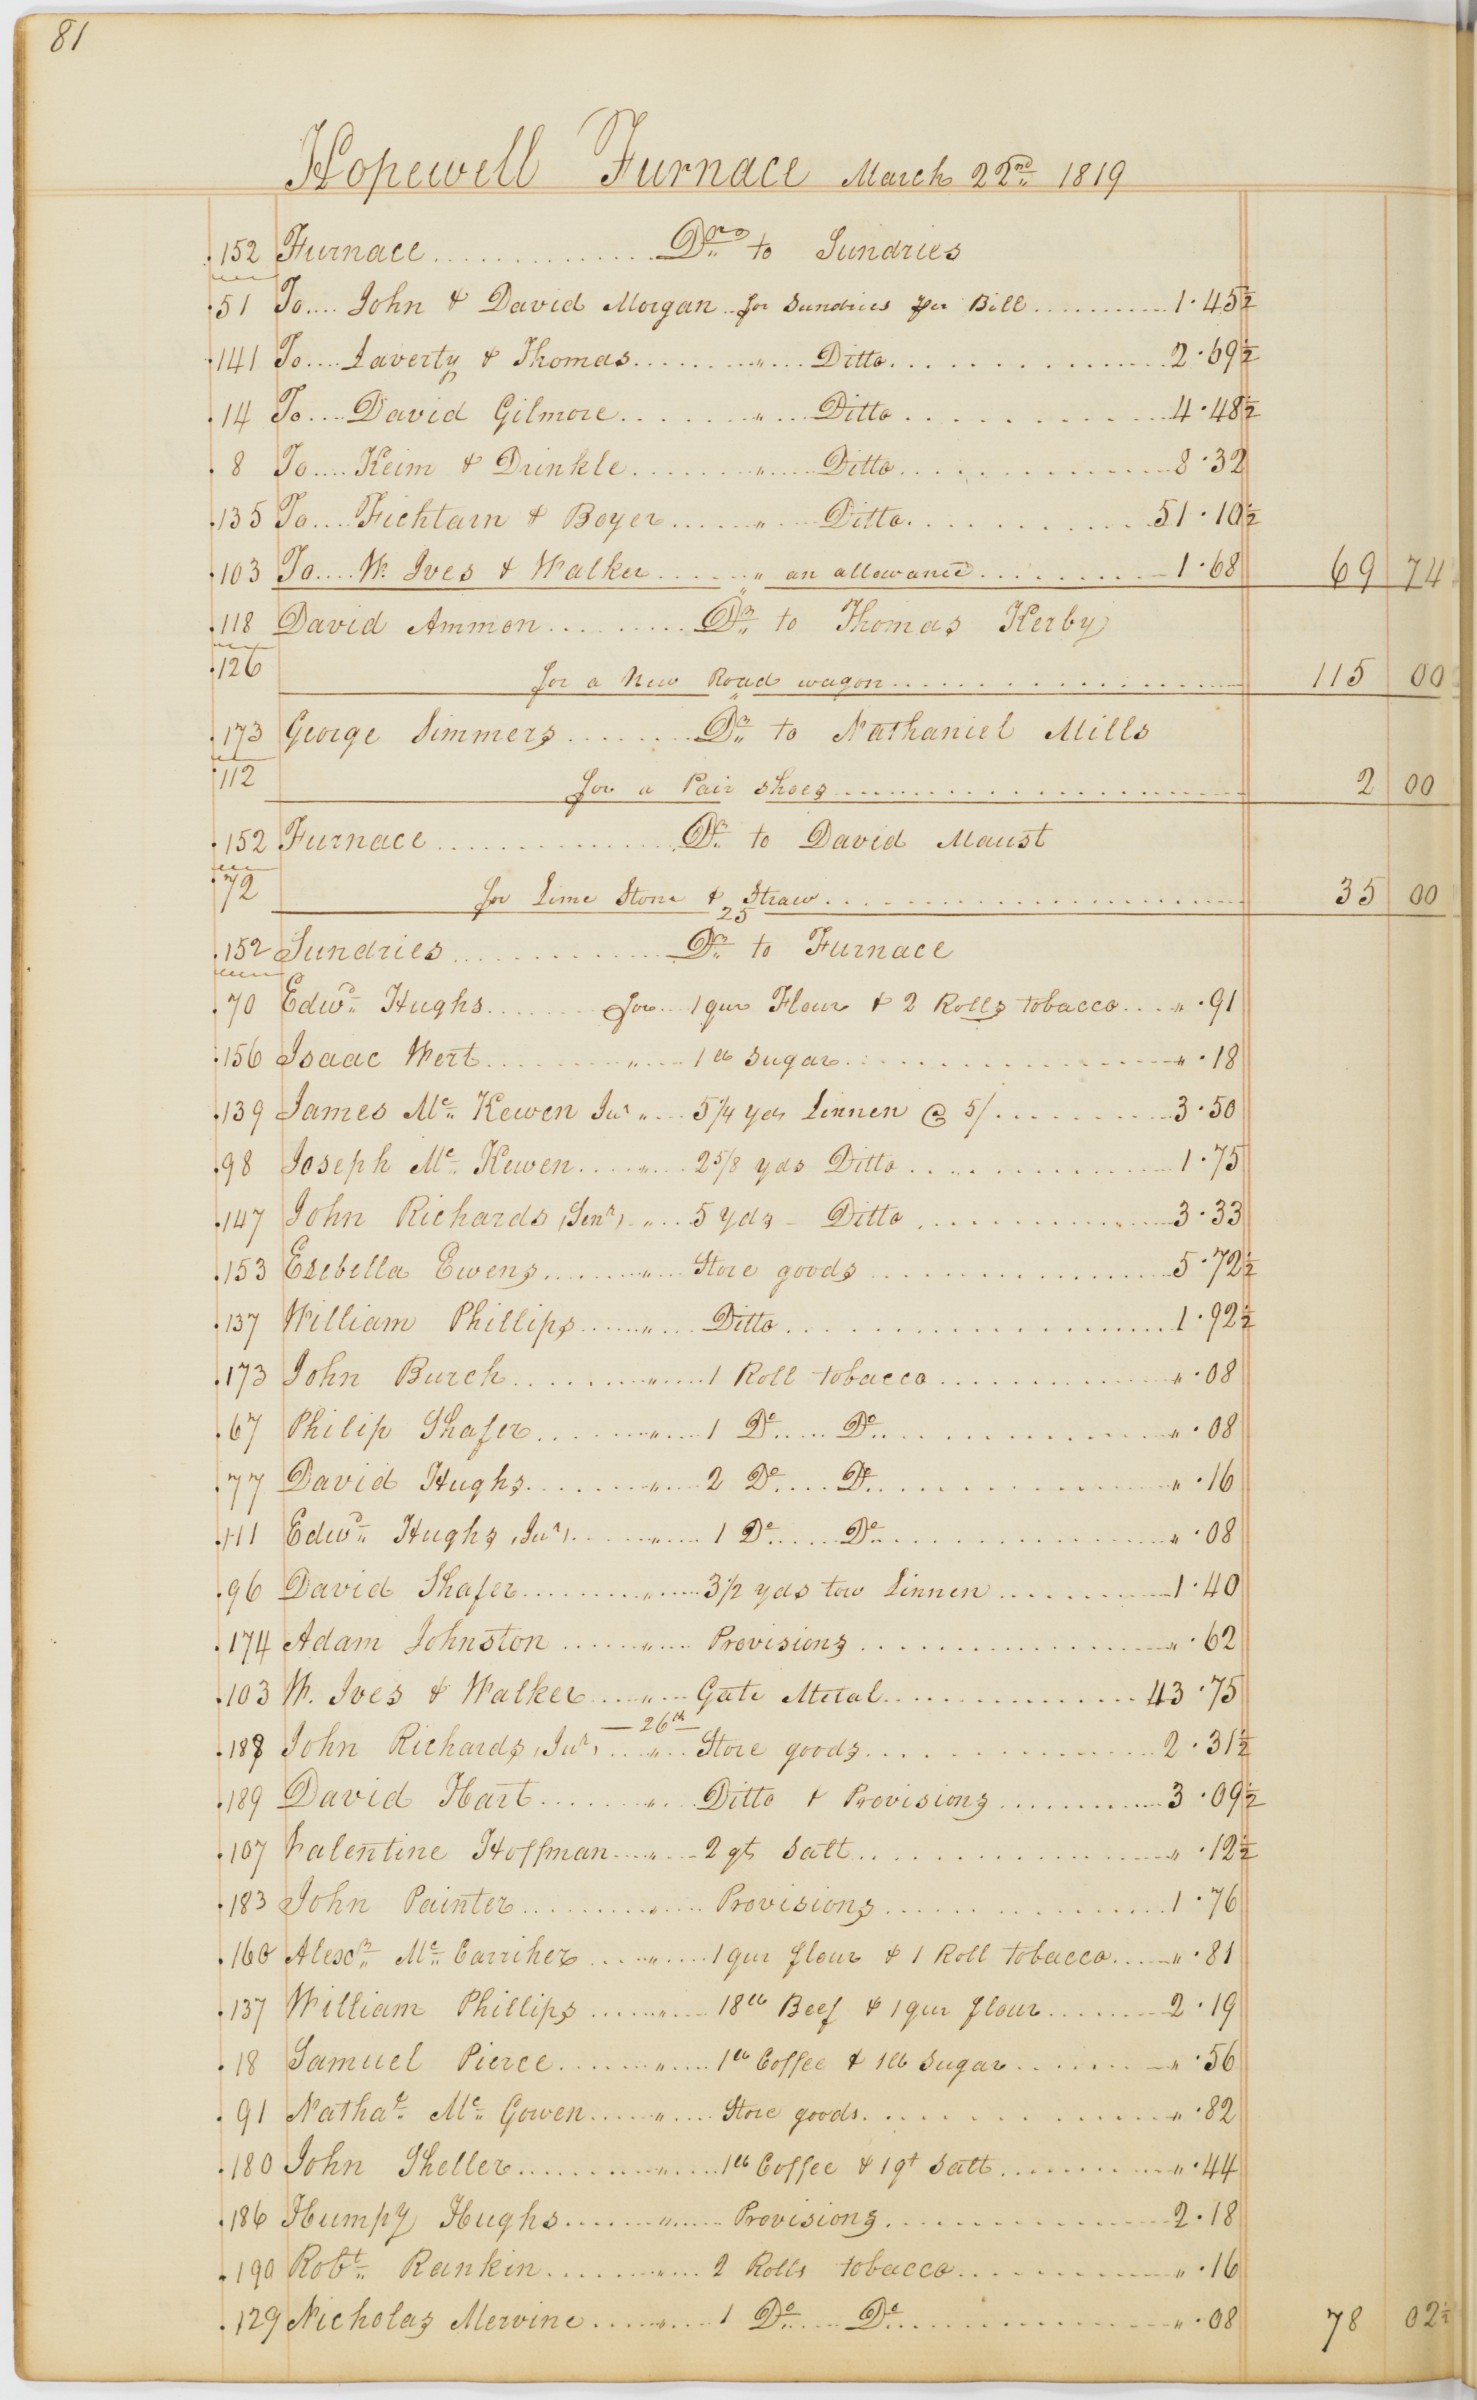 81
Hopewell Furnace March 22nd 1819
152 Furnace Dr to Sundries
51 To John & David Morgan for Sundries per Bill 1.45½
141 To Laverty & Thomas " Ditto 2.69½
14 To David Gilmore " Ditto 4.48½
8 To Keim & Drinkle " Ditto 8.32
135 To Fichtarn & Boyer " Ditto 51.10½
103 To W. Ives & Walker " an allowance 1.68 69 74
118 David Ammon Dr to Thomas Kerby
126 for a New Road wagon 115 00
173 George Simmers Dr to Nathaniel Mills
112 for a Pair shoes 2 00
152 Furnace Dr to David Maust
72 for Lime Stone & Straw 35 00
25
152 Sundries Dr to Furnace
70 Edwd Hughs for 1 qur Flour & 2 Rolls tobacco " .91
156 Isaac Wert " 1 lb Sugar " .18
139 James Mc Kewen Jur " 5 1/4 yds Linnen @ 5/ 3.50
98 Joseph Mc Kewen " 2 5/8 yds Ditto 1.75
147 John Richards (Senr) " 5 yds Ditto 3.33
153 Esebella Ewens " Store goods 5.72½
137 William Phillips " Ditto 1.92½
173 John Burch " 1 Roll tobacco " .08
67 Philip Shafer " 1 Do Do " .08
77 David Hughs " 2 Do Do " .16
111 Edwd Hughs (Jur) " 1 Do Do " .08
96 David Shafer " 3 1/2 yds tow Linnen 1.40
174 Adam Johnston " Provisions " .62
103 W. Ives & Walker " Gate Metal 43.75
26th
188 John Richards (Jur) " Store goods 2.31½
189 David Hart " Ditto & Provisions 3.09½
107 Valentine Hoffman " 2 qts Salt " .12½
183 John Painter " Provisions 1.76
160 Alexr Mc Carriher " 1 qur flour & 1 Roll tobacco " .81
137 William Phillips " 18 lb Beef & 1 qur flour 2.19
18 Samuel Pierce " 1 lb Coffee & 1 lb Sugar " .56
91 Nathal Mc Gowen " Store goods " .82
180 John Sheller " 1 lb Coffee & 1 qt Salt " .44
186 Humpy Hughs " Provisions 2.18
190 Robt Rankin " 2 Rolls tobacco " .16
129 Nicholas Mervine " 1 Do Do " .08 78 02½